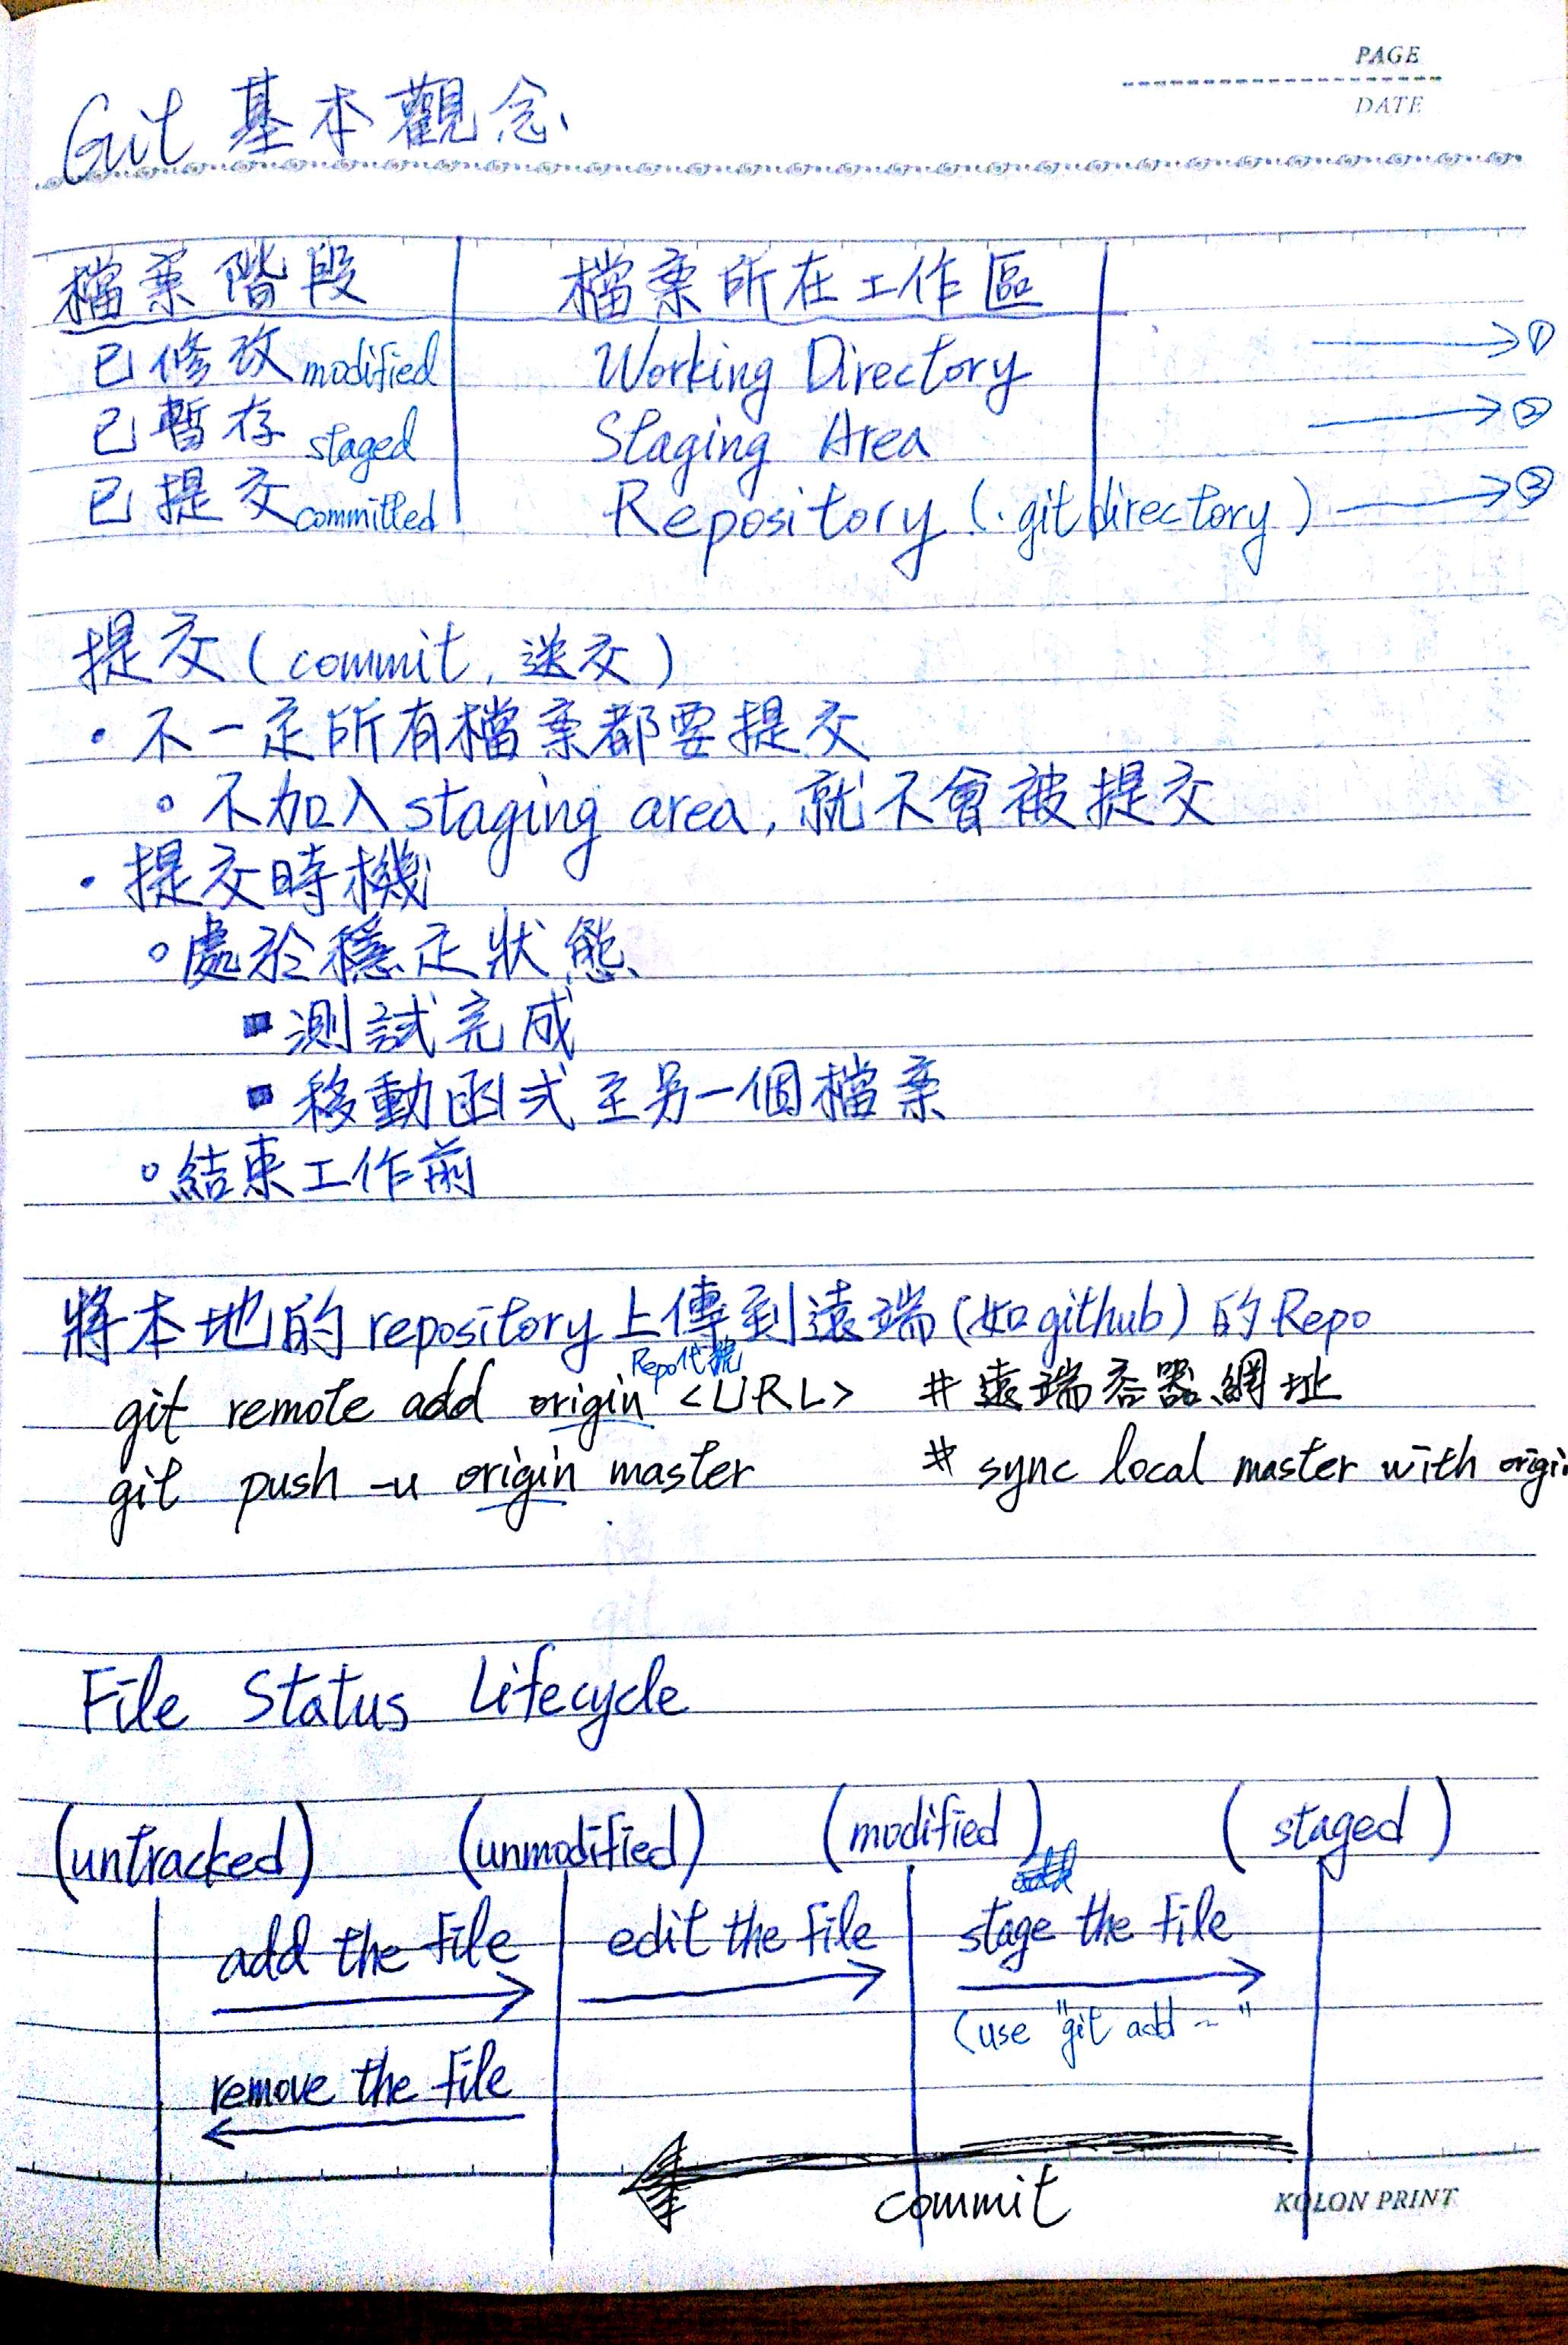 PAGE
DATE
Git 基本觀念
檔案階段 檔案所在工作區
已修改 modified Working Directory → ①
已暫存 staged Staging Area → ②
已提交 committed Repository (.git directory) → ③
提交 (commit, 送交)
• 不一定所有檔案都要提交
◦ 不加入 staging area, 就不會被提交
• 提交時機
◦ 處於穩定狀態
▪ 測試完成
▪ 移動函式至另一個檔案
◦ 結束工作前
將本地的 repository 上傳到遠端 (如 github) 的 Repo
Repo代號
git remote add origin <URL> # 遠端容器網址
git push -u origin master # sync local master with origi
File Status Lifecycle
(untracked) (unmodified) (modified) (staged)
add the file edit the file stage the file
(use "git add ~"
remove the file
commit
KOLON PRINT